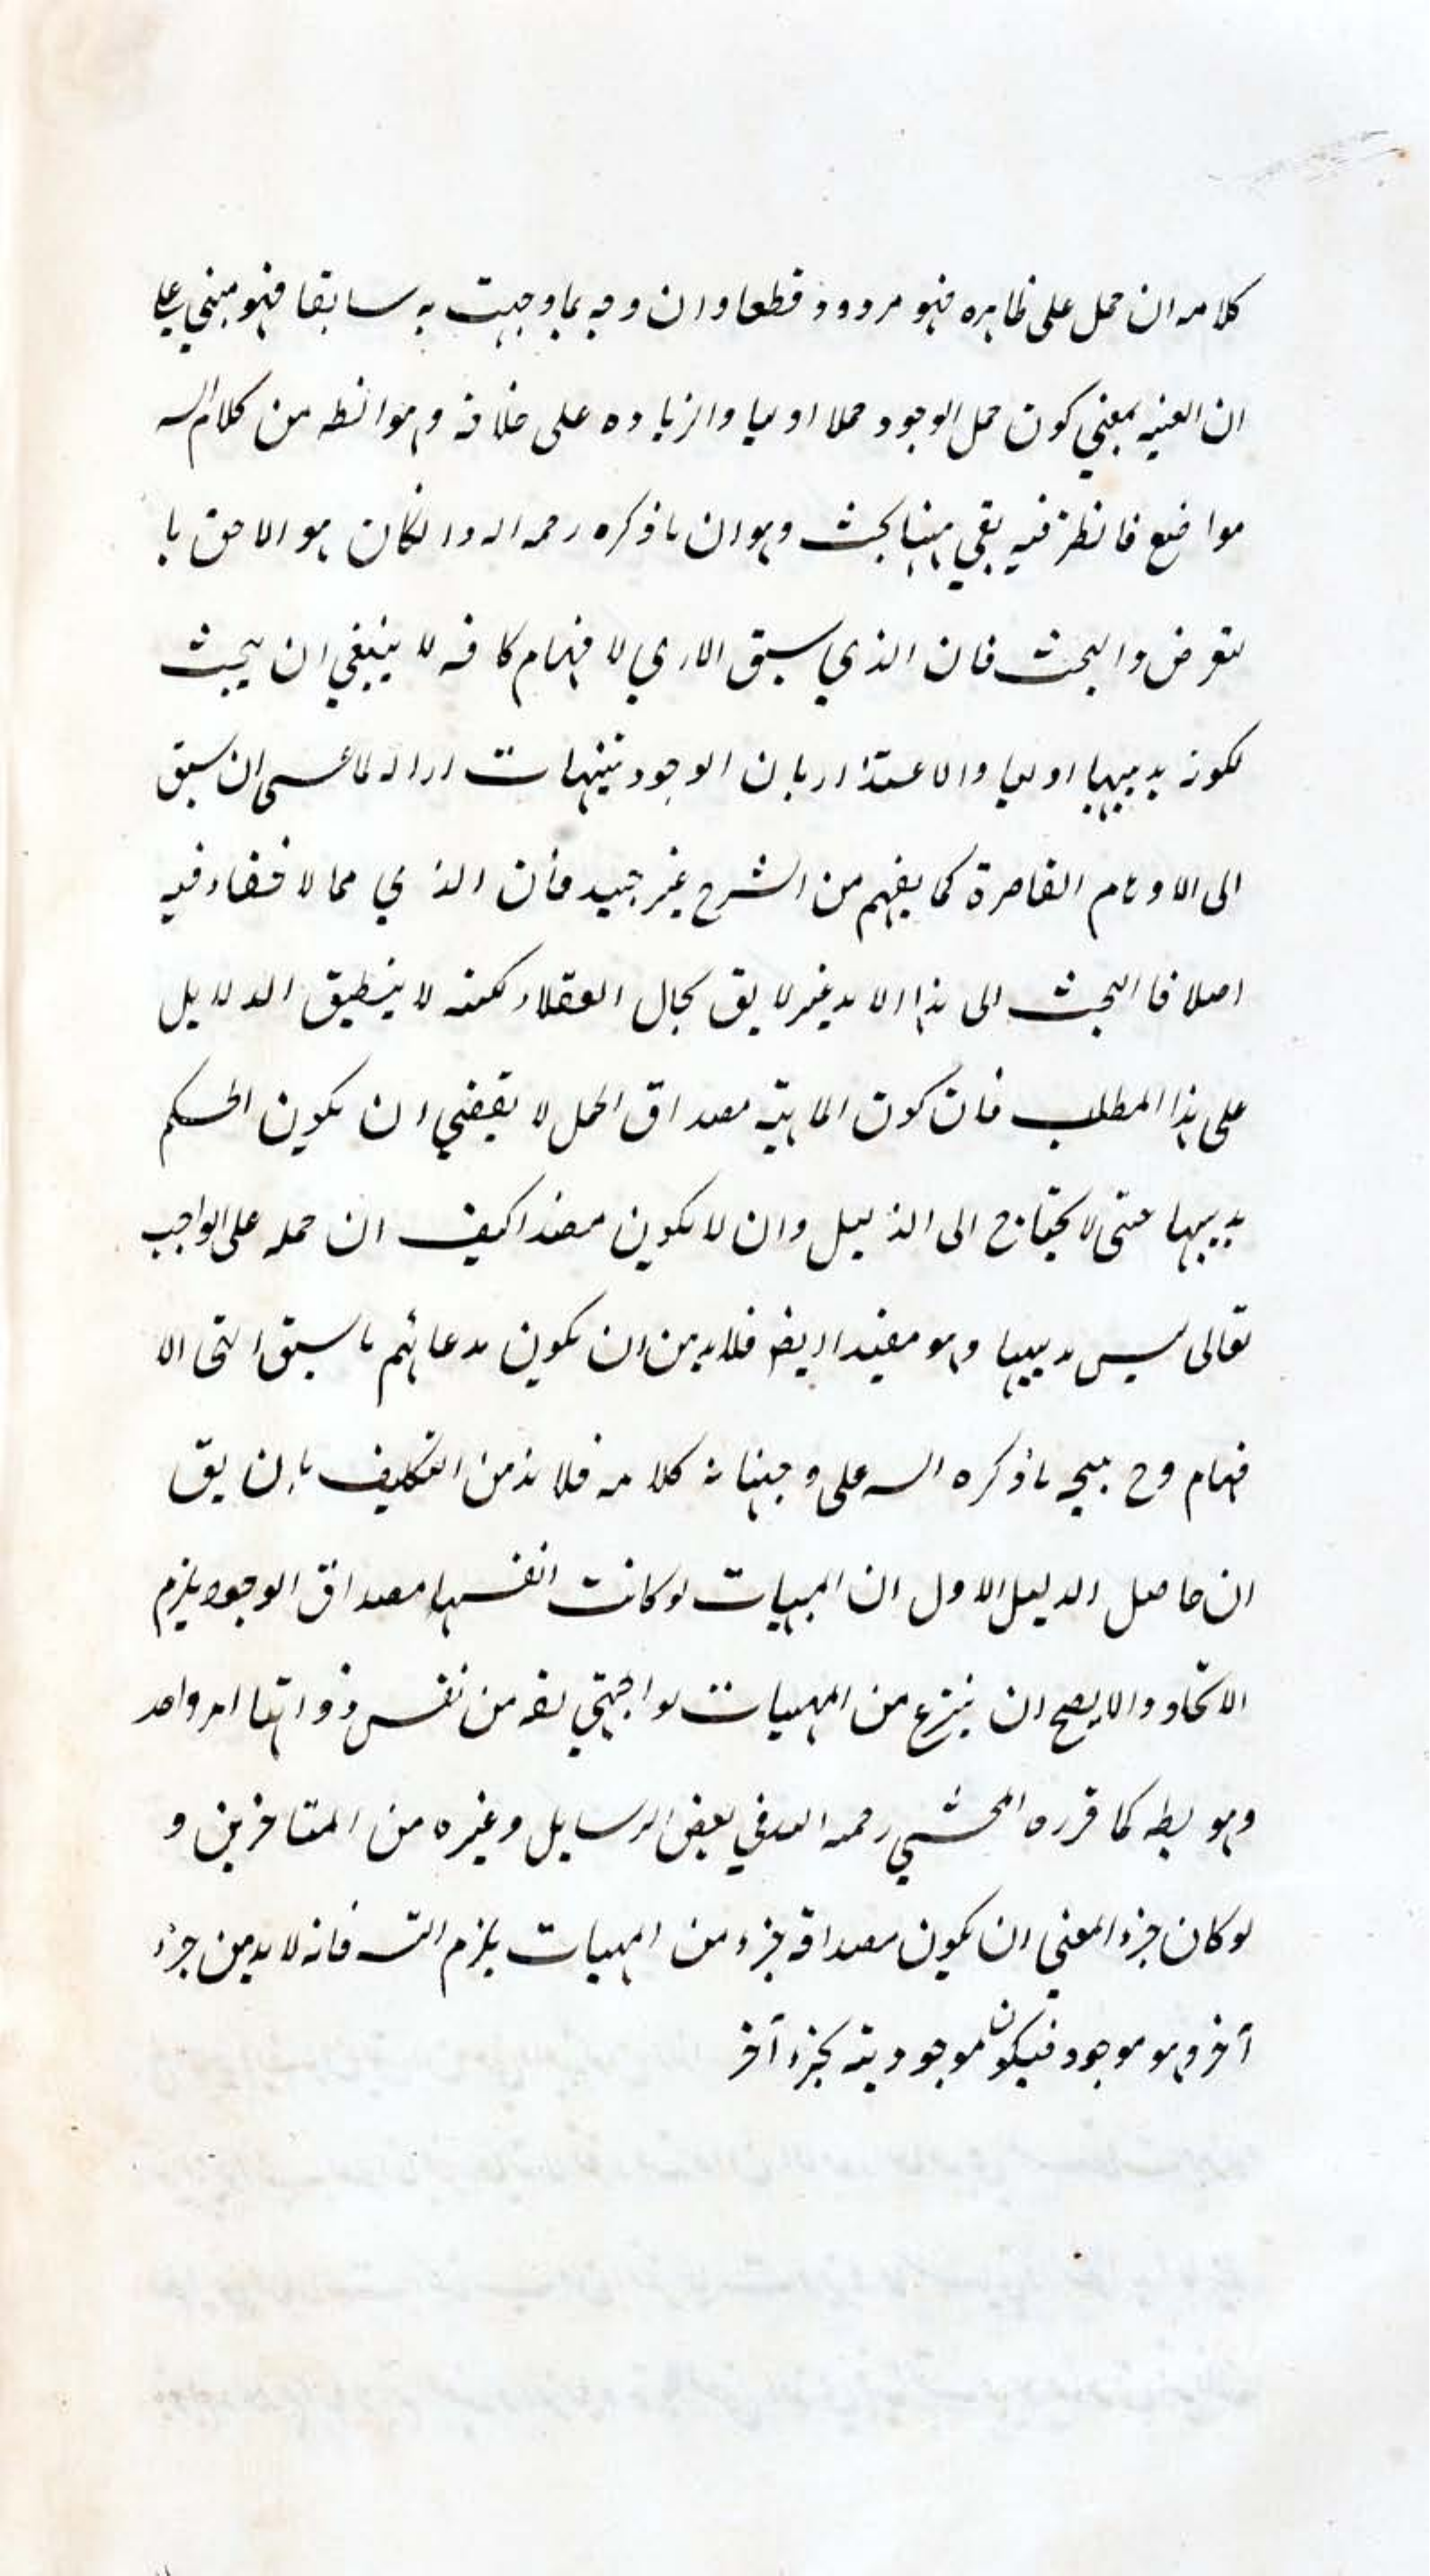 كلامه ان حمل على ظاهره فهو مردود قطعا وان وجه بما وجهت به سابقا فهو مبني على
ان العينيه بمعني كون حمل الوجود حملا اوليا والزياده على خلافه من كلام السه
مواضع فانظر فيه بقي ههنا بحث وهو ان ما ذكره رحمه اله وان كان هو الاحق با
لتعرض والبحث فان الذي سبق الاري لا فهام كافه لا ينبغي ان يبحث
لكونه بديهيا اوليا والاعتذار بان الوجود تنبيهات ازاله لما عسى ان سبق
الى الاوهام القاصرة كما يفهم من الشرح غير جيد فان الذي مما لا خفاء فيه
اصلا فا البحث الى هذا الامد غير لايق بحال العقلاء لكنه لا ينطبق الدلايل
على هذا المطلب فان كون الماهيته مصداق الحمل لا يقضي ان يكون الحكم
بديهيا حتى لا يحتاج الى الدليل وان لا يكون مفيدا كيف ان حمله على الواجب
تعالى ليس بديهيا وهو مفيد ايضا فلابد من ان يكون مدعائهم ما سبق التى الا
فهام وح يتجه ما ذكره السه على وجهنا به كلامه فلا بد من التكليف بان يق
ان حاصل الدليل الاول ان المهيات لو كانت انفسها مصداق الوجود يلزم
الاتحاد والا يصح ان ينتزع من المهيات من نفس ذواتها امر واحد
وهو بط كما قرره المحشي رحمه الله في بعض الرسايل وغيره من المتاخرين و
لو كان جزء المعني ان يكون مصداقه جزء من المهيات يلزم التسه فانه لا بد من جزء
آخر وهو موجود فيكون موجوديته بجزء آخر